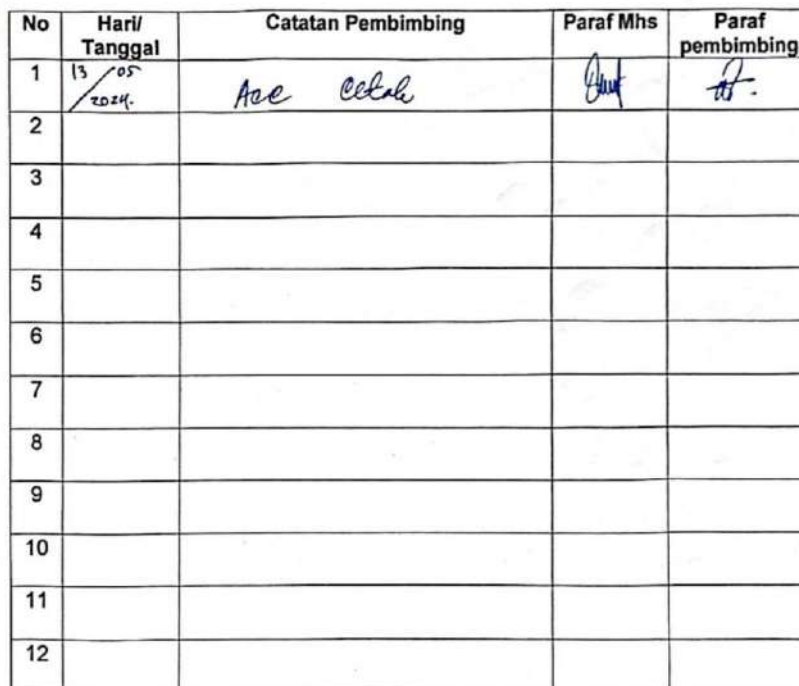 No Hari/ Tanggal Catatan Pembimbing Paraf Mhs Paraf pembimbing
1 13/05 2024. Acc Cetak
2
3
4
5
6
7
8
9
10
11
12